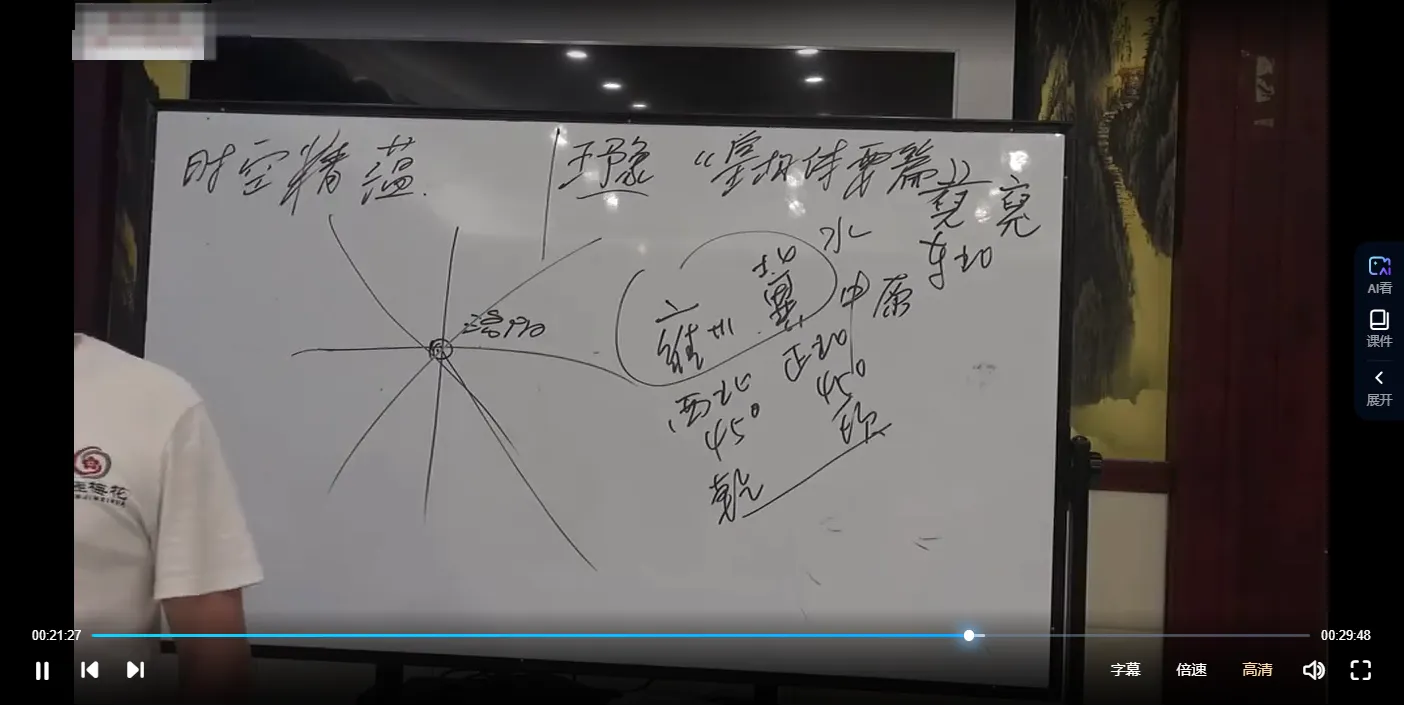 时空精蕴.
王豫 “皇极体要篇”
亮
东北
水
北
冀
中 原
雍 州
洛阳
正北
45°
西北
45°
坎
乾
梅花
AI看
课件
展开
00:21:27
00:29:48
字幕 倍速 高清